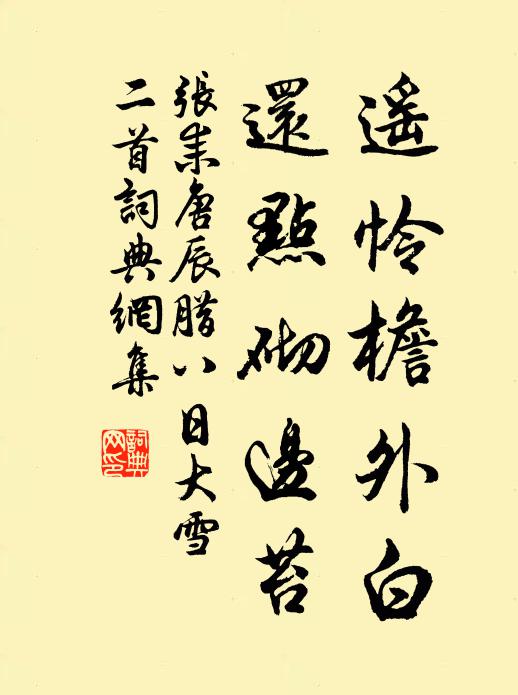 遥怜檐外白
還點砌邊苔
張耒庚辰腊八日大雪
二首詞典網集
詞典网印